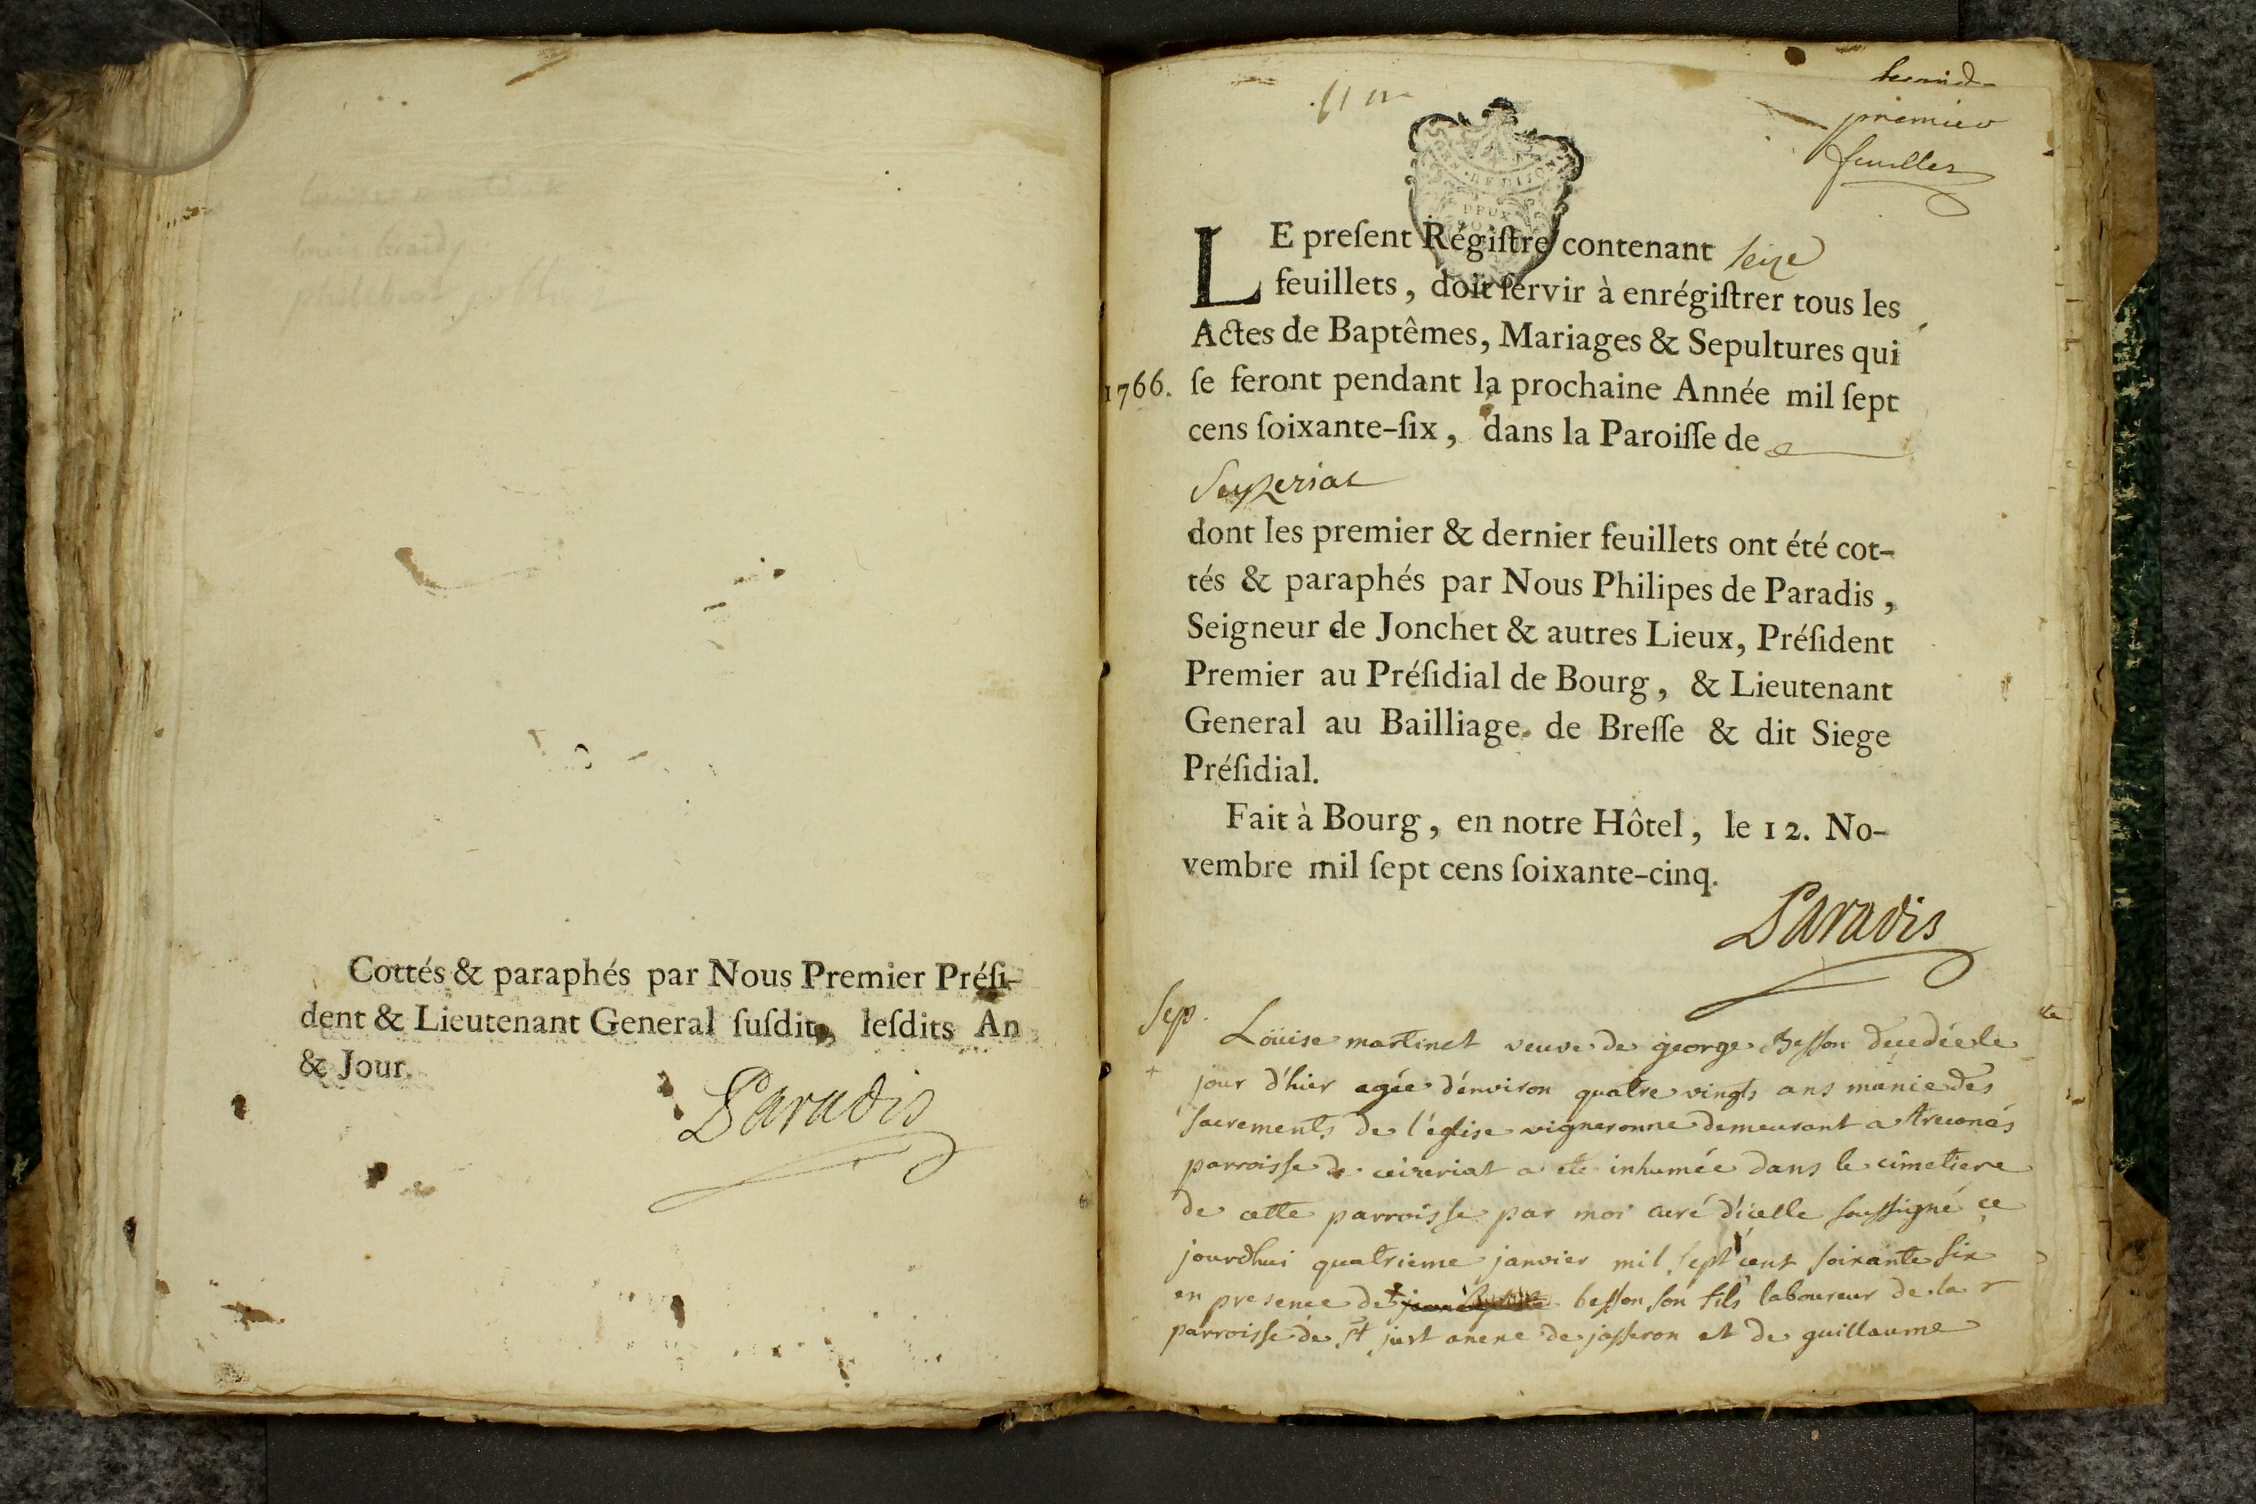 Cottés & paraphés par Nous Premier Préſi-
dent & Lieutenant General ſuſdit, leſdits An
& Jour.
Paradis
premier
feuillet
DEUX
LE preſent Régiſtre contenant seize
feuillets, doit ſervir à enrégiſtrer tous les
Actes de Baptêmes, Mariages & Sepultures qui
1766. ſe feront pendant la prochaine Année mil ſept
cens ſoixante-ſix, dans la Paroiſſe de
Seyzeriat
dont les premier & dernier feuillets ont été cot-
tés & paraphés par Nous Philipes de Paradis,
Seigneur de Jonchet & autres Lieux, Préſident
Premier au Préſidial de Bourg, & Lieutenant
General au Bailliage de Breſſe & dit Siege
Préſidial.
Fait à Bourg, en notre Hôtel, le 12. No-
vembre mil ſept cens ſoixante-cinq.
Paradis
Sep.
Loüise martinet veuve de george Besson decedée le
jour d'hier agée d'environ quatre vingts ans munie des
sacrements de l'église vigneronne demeurant a treconas
parroisse de ceizeriat a eté inhumée dans le cimetiere
de cette parroisse par moi curé d'icelle soussigné ce
jourdhui quatrieme janvier mil sept cent soixante six
en presence de besson son fils laboureur de la
parroisse de st just anexe de jasseron et de guillaume